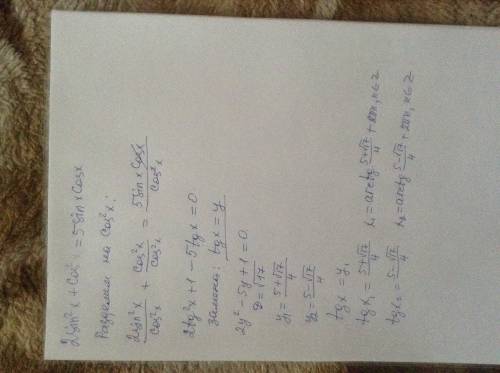 2sin²x + cos²x = 5sinx cosx
Разделим на cos²x:
2sin²x/cos²x + cos²x/cos²x = 5sinx cosx/cos²x
2tg²x + 1 - 5tgx = 0
Замена: tgx = y
2y² - 5y + 1 = 0
D = √17
y₁ = (5+√17)/4
y₂ = (5-√17)/4
tgx = y₁
tgx₁ = (5+√17)/4 x₁ = arctg (5+√17)/4 + 2πn, n∈Z
tgx₂ = (5-√17)/4 x₂ = arctg (5-√17)/4 + 2πn, n∈Z